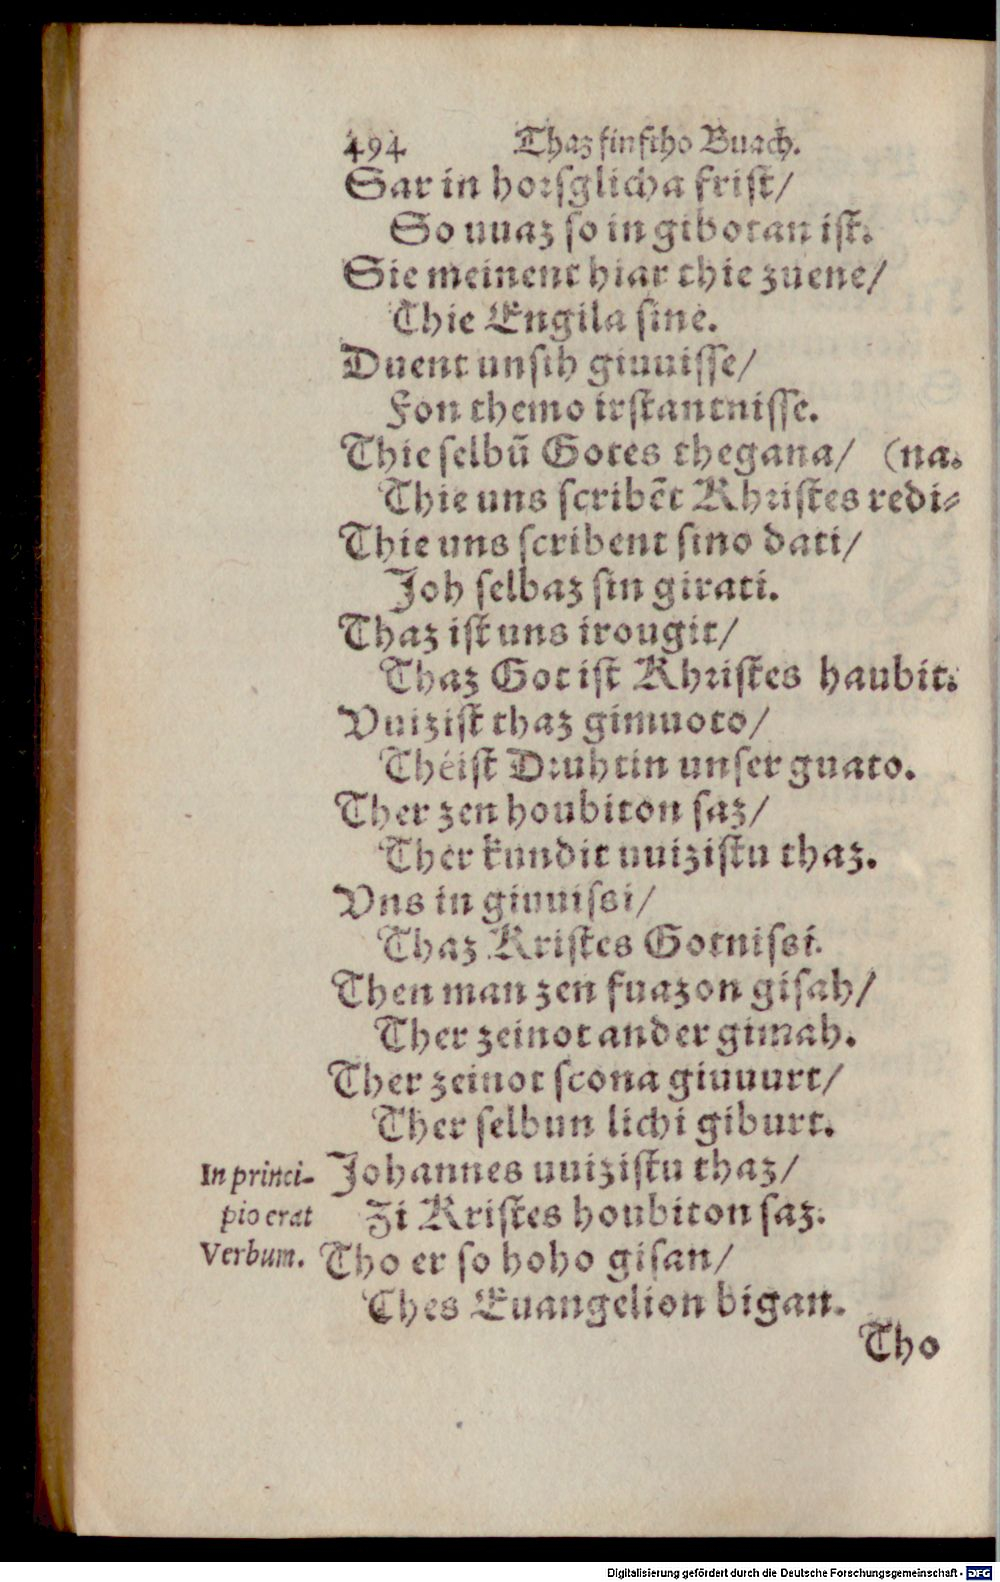 494 Thaz finftho Buach.
Sar in horsglicha frist/
So uuaz so in gibotan ist.
Sie meinent hiar thie zuene/
Thie Engila sine.
Duent unsih giuuisse/
Fon themo irstantnisse.
Thie selbũ Gotes thegana/ (na.
Thie uns scribẽt Khristes redi-
Thie uns scribent sino dati/
Joh selbaz sin girati.
Thaz ist uns irougit/
Thaz Got ist Khristes haubit.
Vuizist thaz gimuoto/
Théist Druhtin unser guato.
Ther zen houbiton saz/
Ther kundit uuizistu thaz.
Vns in giuuissi/
Thaz Kristes Gotnissi.
Then man zen fuazon gisah/
Ther zeinot ander gimah.
Ther zeinot scona giuuurt/
Ther selbun lichi giburt.
Johannes uuizistu thaz/
Zi Kristes houbiton saz.
Tho er so hoho gisan/
Thes Euangelion bigan.
In princi-
pio erat
Verbum.
Tho
Digitalisierung gefördert durch die Deutsche Forschungsgemeinschaft - DFG